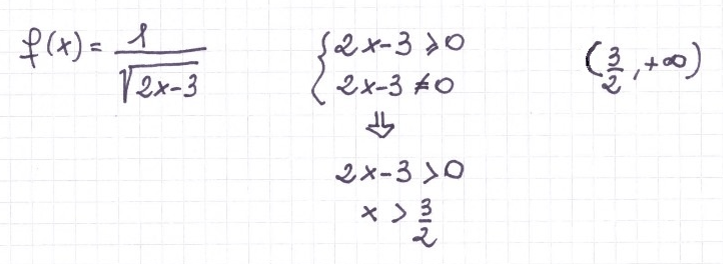 f(x) = 1/√(2x-3)
{2x-3 ⩾ 0
2x-3 ≠ 0
⇓
2x-3 > 0
x > 3/2
(3/2, +∞)